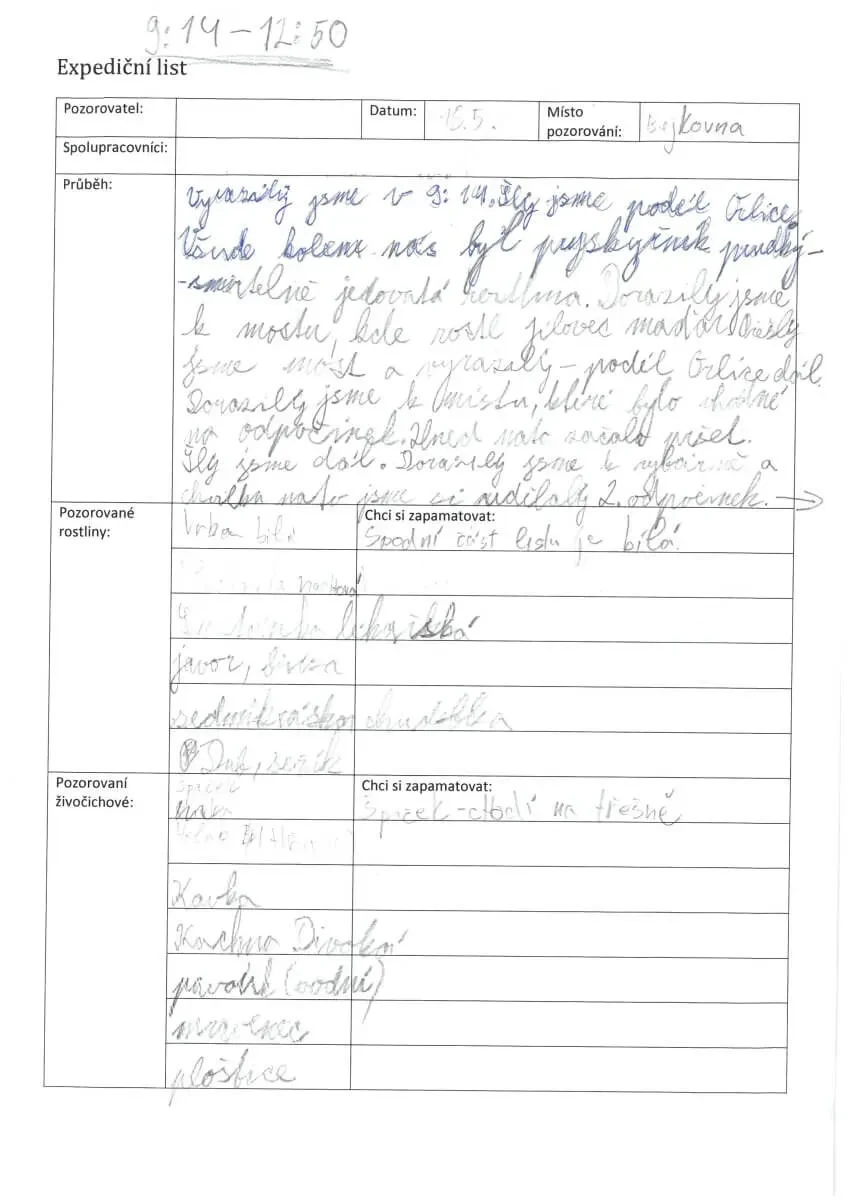 9:14 – 12:50
Expediční list
Pozorovatel:
Datum: 15.5. Místo pozorování: Bejkovna
Spolupracovníci:
Průběh:
Vyrazily jsme v 9:14. Šly jsme podél Orlice.
Všude kolem nás byl pryskyřník prudký –
-smrtelně jedovatá rostlina. Dorazily jsme
k mostu, kde rostl jilovec maďal.
jsme most a vyrazily – podél Orlice dál.
Dorazily jsme k místu, které bylo vhodné
na odpočinek. Hned nato začalo pršet.
Šly jsme dál. Dorazily jsme k rybárně a
chvilku nato jsme si udělaly 2. odpočinek. →
Pozorované rostliny:
Chci si zapamatovat:
Vrba bílá
Spodní část listu je bílá.
lékařská
javor, bříza
sedmikráska chudobka
Dub, šeřík
Pozorovaní živočichové:
Chci si zapamatovat:
Špaček
Špaček - chodí na třešně
Kavka
Kachna Divoká
pavouk (vodní)
mravenec
ploštice